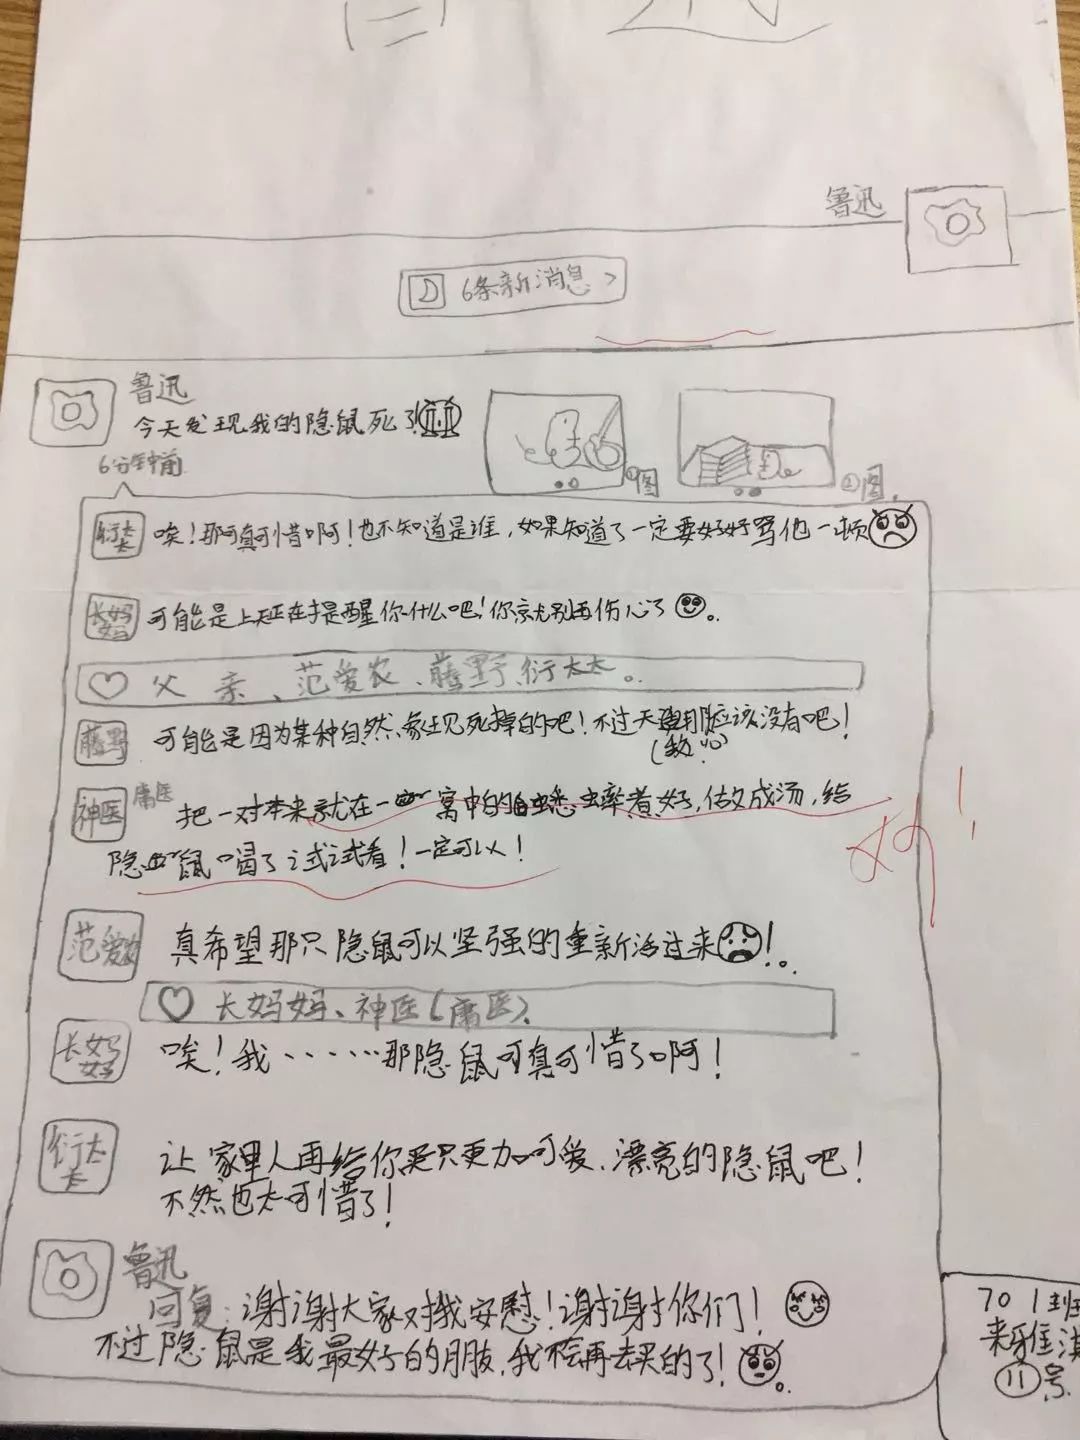 鲁迅
6条新消息 >
鲁迅
今天发现我的隐鼠死了!
6分钟前
①图
②图.
衍太太
唉!那可真可惜啊!也不知道是谁,如果知道了一定要好好骂他一顿
长妈妈
可能是上天正在提醒你什么吧!你就别再伤心了。
父亲、范爱农、藤野、衍太太。
藤野
可能是因为某种自然、象现死掉的吧!不过天理那应该没有吧!
神医
庸医
把一对本来就在一窝中的蟋蟀煮好,做成汤,给
隐鼠喝了试试看!一定可以!
好!
范爱农
真希望那只隐鼠可以坚强的重新活过来!。
长妈妈、神医(庸医)、
长妈妈
唉!我······那隐鼠可真可惜了啊!
衍太太
让家里人再给你买只更加可爱、漂亮的隐鼠吧!
不然也太可惜了!
鲁迅
回复:谢谢大家对我安慰!谢谢你们!
不过隐鼠是我最好的朋友,我不会再去买的了!。
701班
来雅淇
⑪号